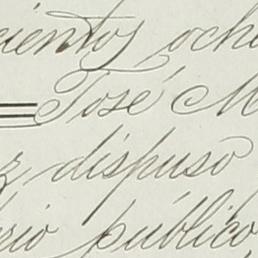 cientos oche
José M
z dispuso
rio público,